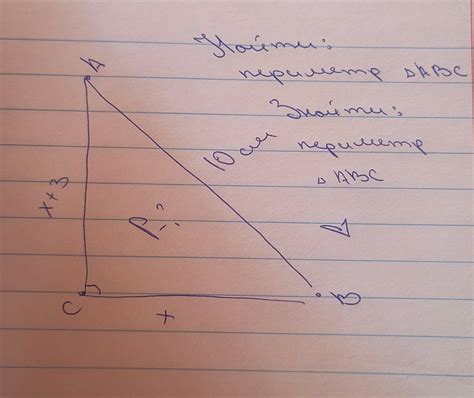 Найти:
периметр △ABC
Знайти:
периметр
△ABC
A
10 см
x+3
P - ?
C
x
B